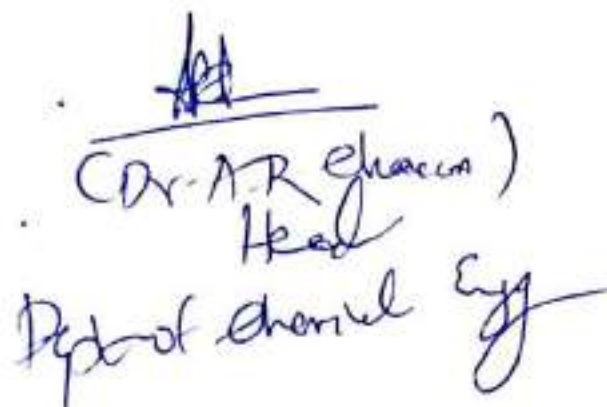 (Dr. A.R
Head
Dept of Chemical Engg